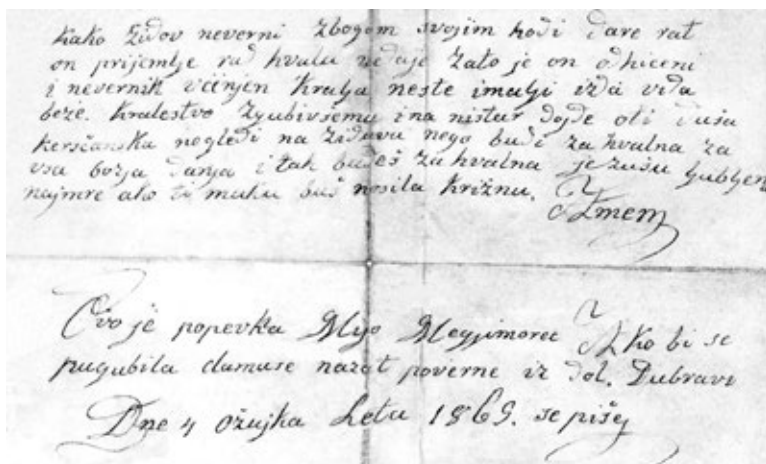 kako Židov neverni zbogom svojim hodi dare rat
on prijemlje rad hvalu nedaje zato je on odhićeni
i nevernik včinjen Kralja neste imalji izda vida
beže. Kralestvo zgubivšemu ina ništar dojde oti duša
kerščanska nogledi na židavu nego budi zahvalna za
vsa božja danja i tak budeš zahvalna jezušu ljubljen
najmre ako ti muku buš nosila križnu. Amem
Ovo je popevka Mijo Megjimorec Ako bi se
pugubila damuse nazat poverne iz dol. Dubrave
Dne 4 ožujka Letu 1869. se pišej